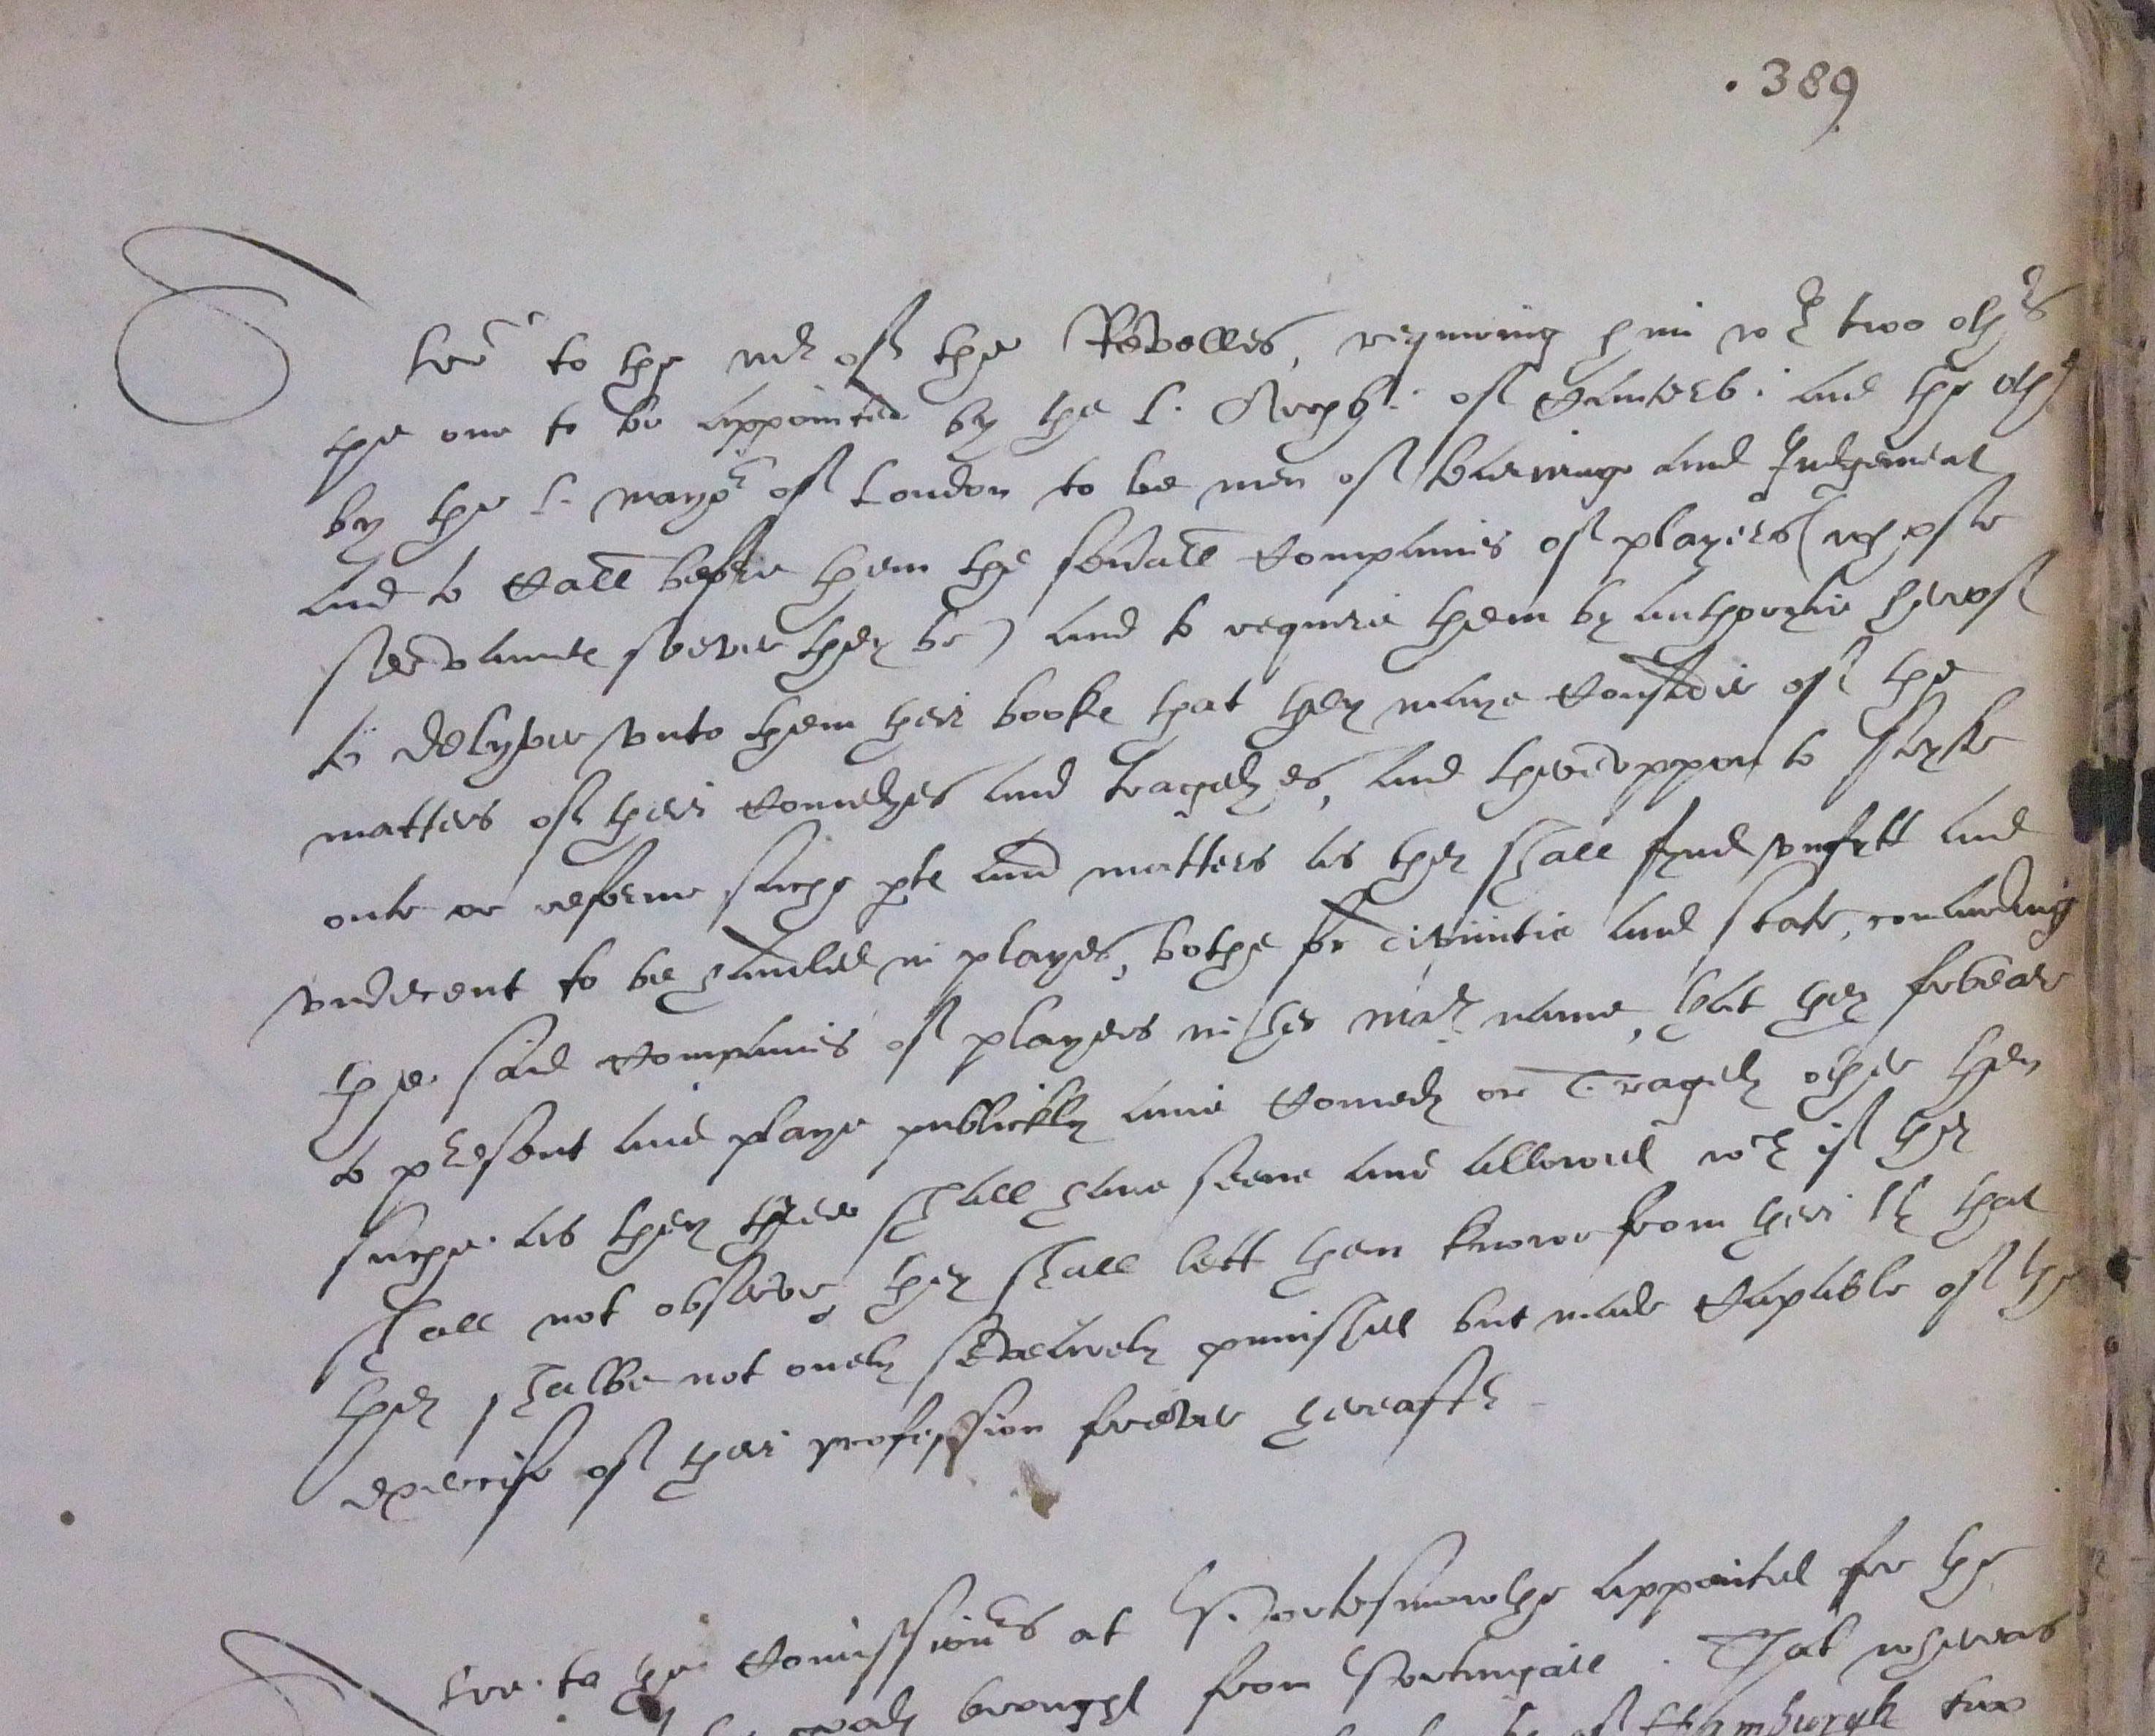 .389
A lre to the mr of the Revelles, requiring him wth two othrs
the one to be appointed by the L. Archb: of Canterb: and the othr
by the L. Mayor of London to be men of learninge and Judgement
and to call before them the severall companies of players (whose
servauntes soever they be) and to require them by authorytie hereof
to delyver unto them their bookes that they maye consider of the
matters of their comedyes and tragedyes, and thereuppon to stryke
oute or reforme suche ptes and matters as they shall fynd unfytt and
undecent to be handled in playes, bothe for Divinitie and State, comanding
the said companies of players in her Mats name, that they forbear
to present and playe publickly anie comedy or Tragedy other then
suche as they three shall have seene and allowed wch if they
shall not observe, they shall lett them knowe from their lls that
they shalbe not onely sevearely punished but made capable of the
exercise of their profession forever hereaftr
A lre to the comissionrs at Portesmouthe appointed for the
goods brought from Portingall. That whereas
of Hamburgh two